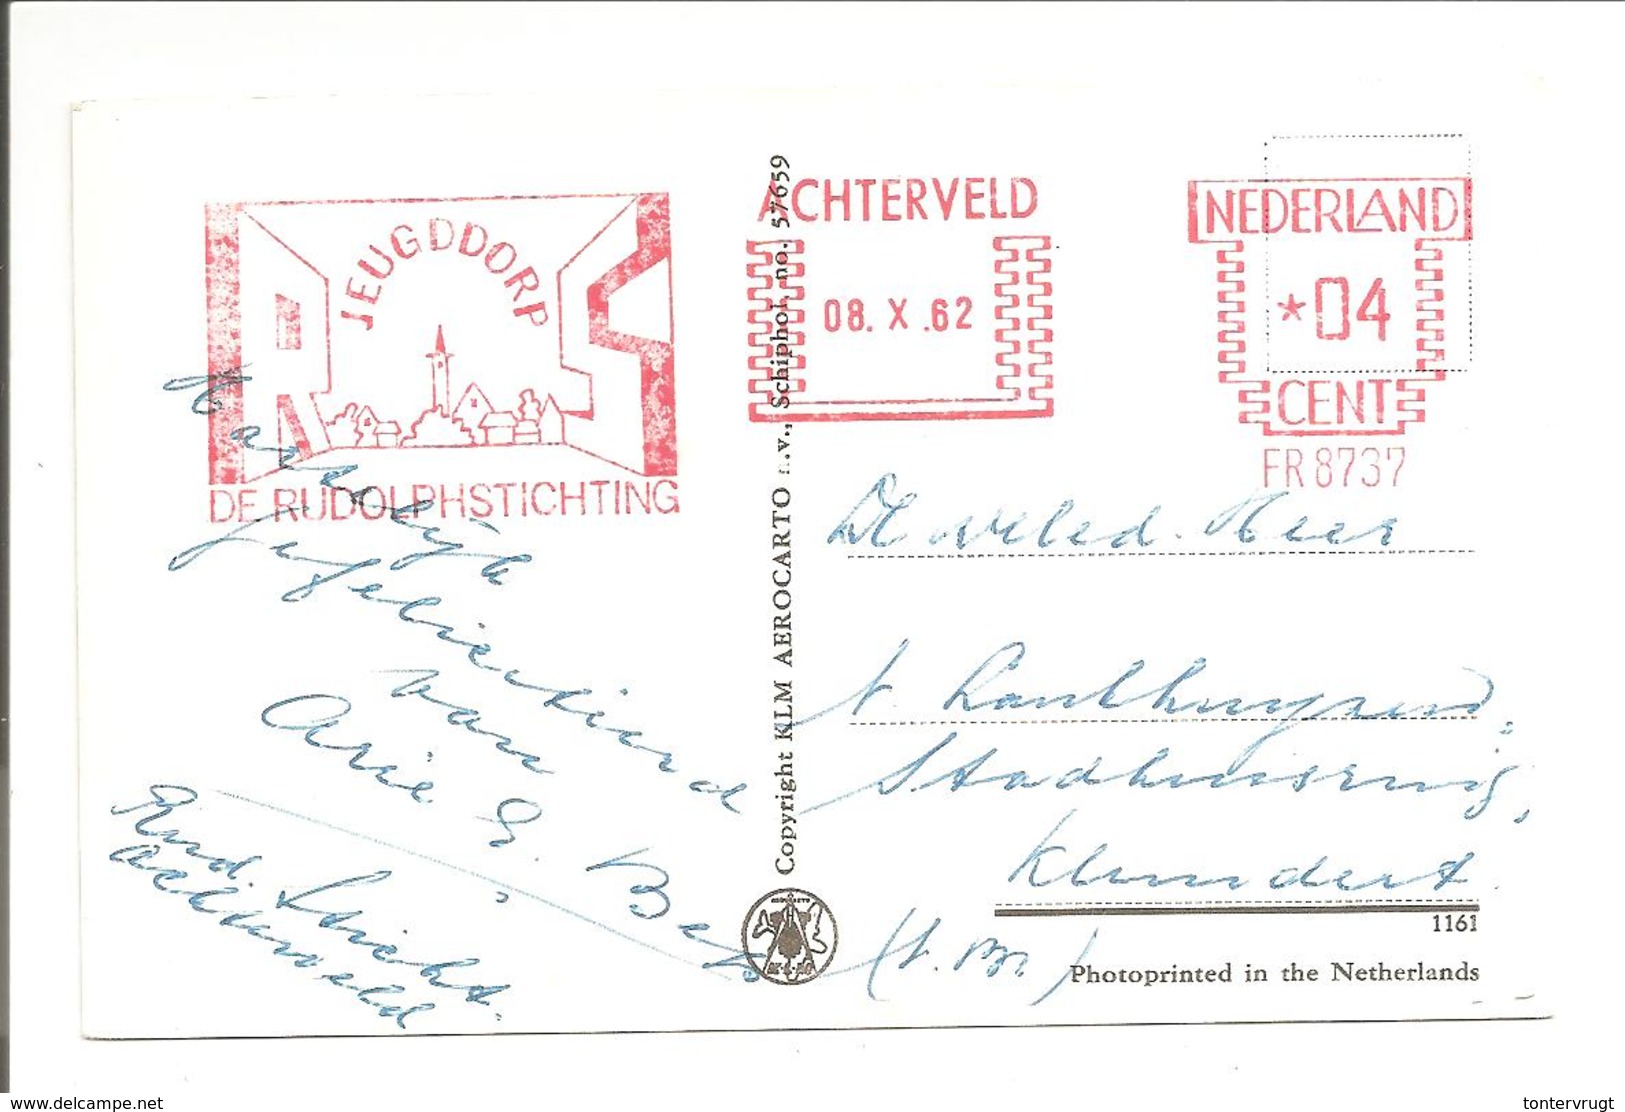 JEUGDDORP
RS
DE RUDOLPHSTICHTING
ACHTERVELD
08. X .62
NEDERLAND
*04
CENT
FR 8737
Hartelijk
gefeliciteerd
van
Arie
Rud. Sticht.
Achterveld
Copyright KLM AEROCARTO n.v., Schiphol, no. 57659
De weled. Heer
Stadhuisring,
Klundert
1161
Photoprinted in the Netherlands
www.delcampe.net
tontervrugt